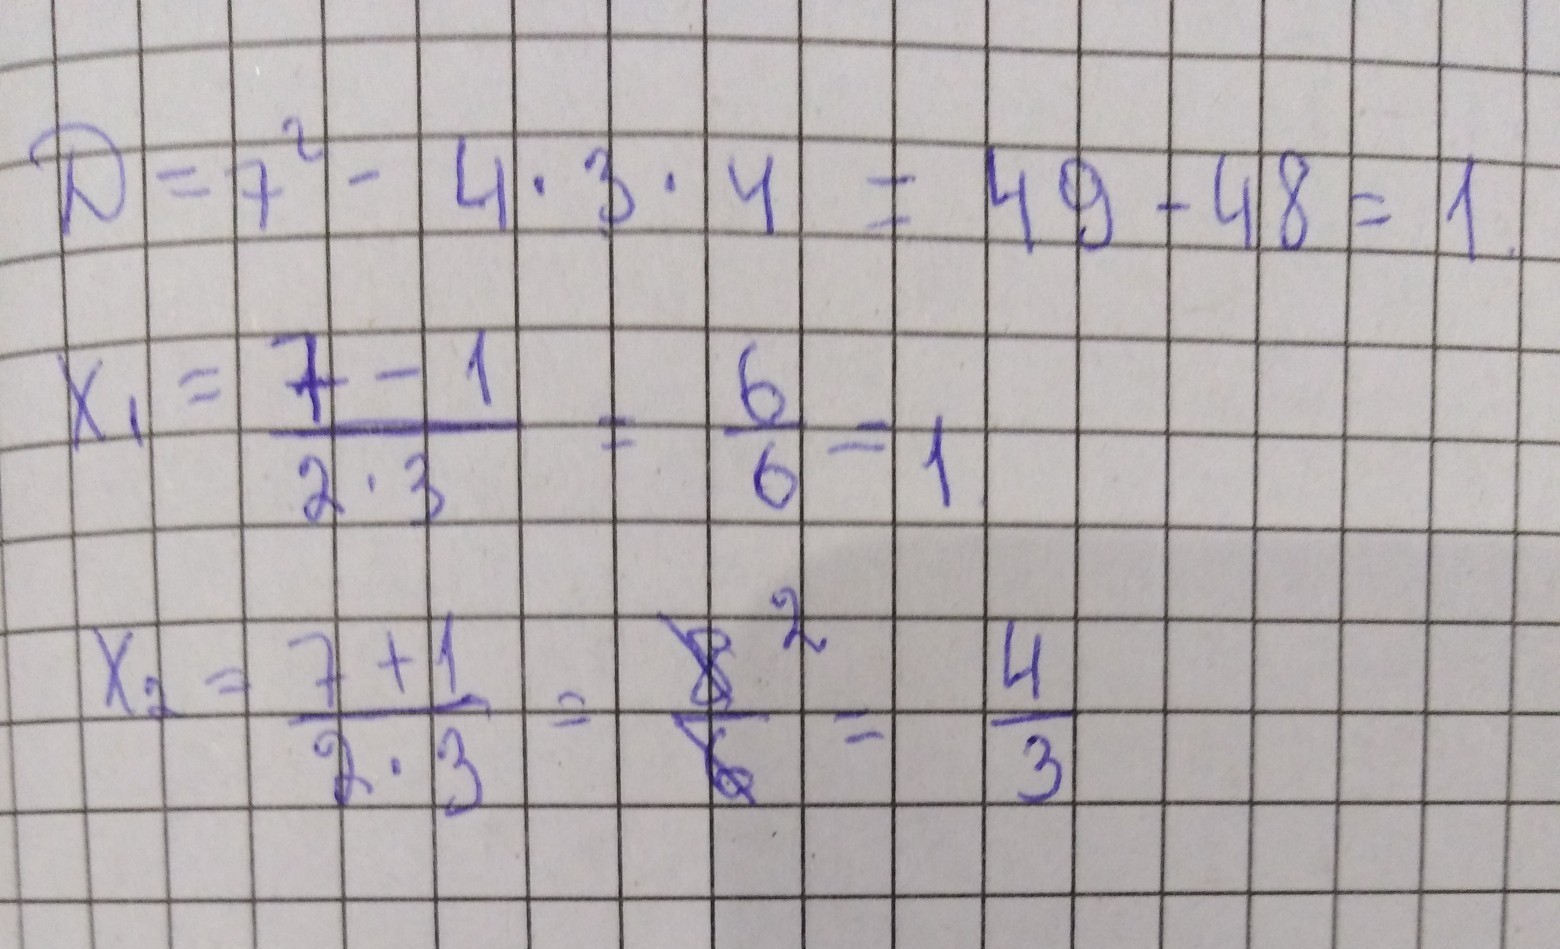 D = 7² - 4 · 3 · 4 = 49 - 48 = 1
x₁ = (7 - 1)/(2 · 3) = 6/6 = 1
x₂ = (7 + 1)/(2 · 3) = 8/6 ² = 4/3